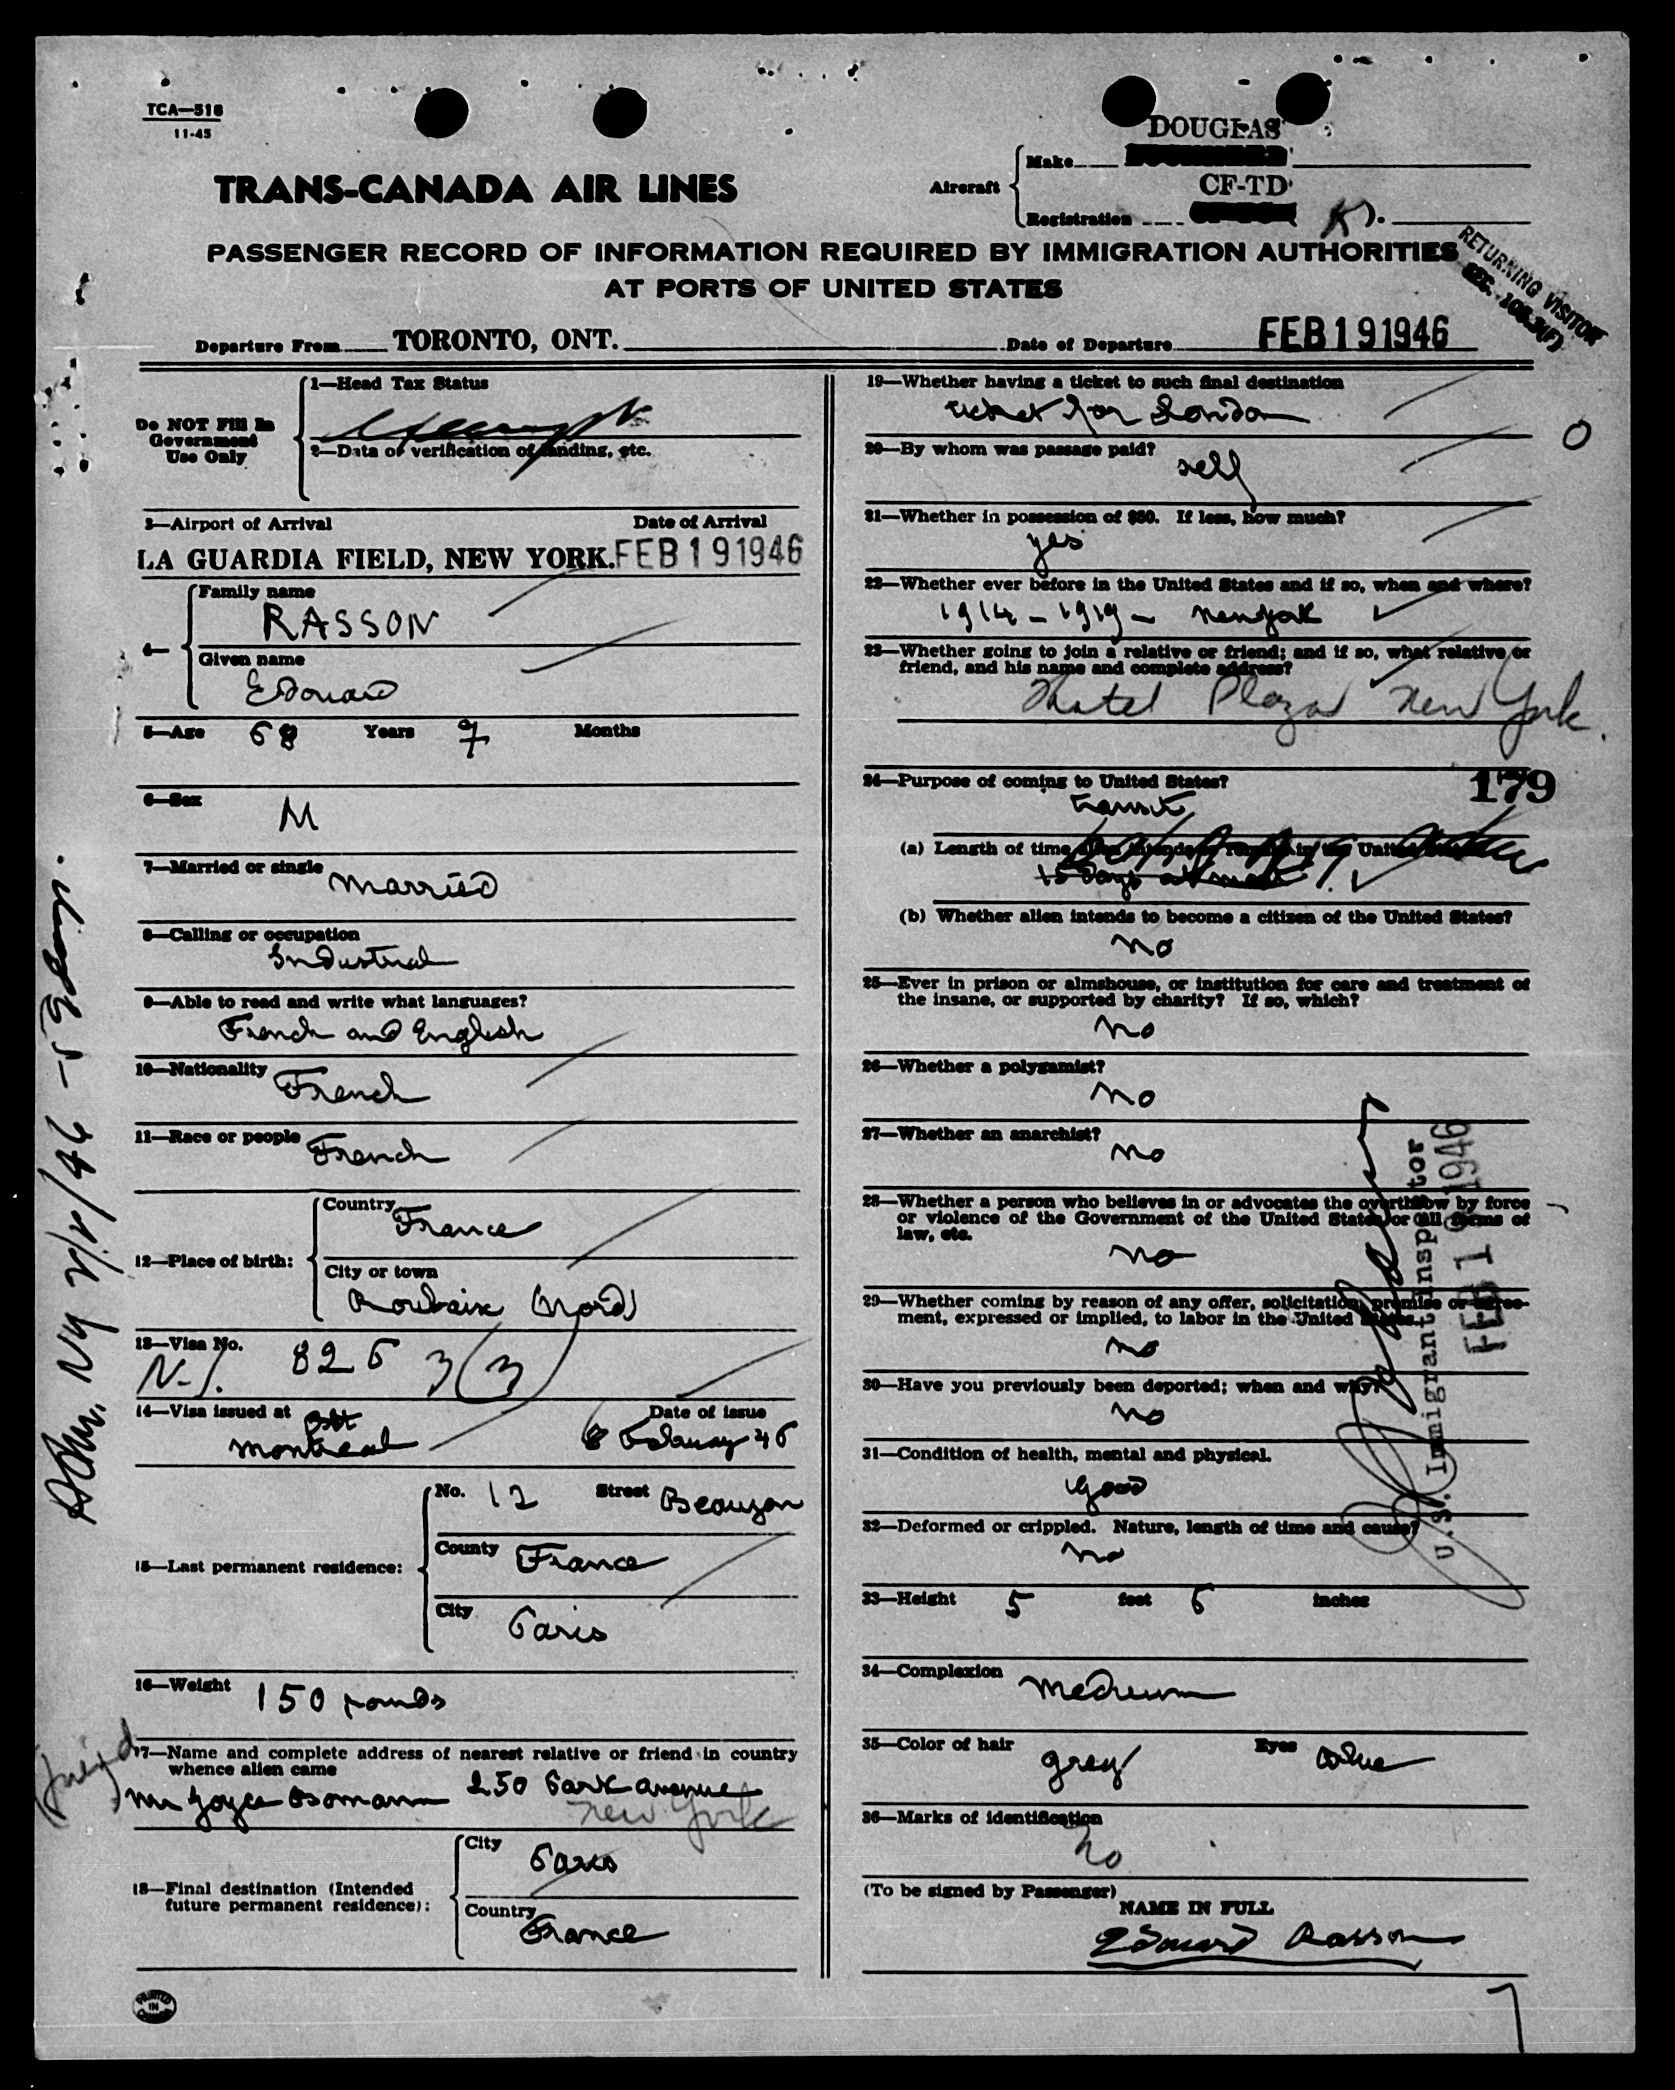 TCA—518
11-45
TRANS-CANADA AIR LINES
Aircraft
Make
DOUGLAS
Registration
CF-TD
PASSENGER RECORD OF INFORMATION REQUIRED BY IMMIGRATION AUTHORITIES
AT PORTS OF UNITED STATES
RETURNING VISITOR
Departure From TORONTO, ONT. Date of Departure FEB 19 1946
Do NOT Fill In
Government
Use Only
1—Head Tax Status
2—Data of verification of landing, etc.
3—Airport of Arrival Date of Arrival
LA GUARDIA FIELD, NEW YORK. FEB 19 1946
4—
Family name
RASSON
Given name
Edouard
5—Age 68 Years 7 Months
6—Sex
M
7—Married or single
Married
8—Calling or occupation
Industrial
9—Able to read and write what languages?
French and English
10—Nationality
French
11—Race or people
French
12—Place of birth:
Country
France
City or town
Roubaix (Nord)
13—Visa No.
826 3(3)
14—Visa issued at Date of issue
Montreal 8 February 46
15—Last permanent residence:
No. 12 Street Beaujon
County France
City
Paris
16—Weight 150 pounds
17—Name and complete address of nearest relative or friend in country
whence alien came
friend
Joyce 250 Park avenue
New York
18—Final destination (Intended
future permanent residence):
City
Paris
Country
France
19—Whether having a ticket to such final destination
ticket for London
20—By whom was passage paid?
self
21—Whether in possession of $50. If less, how much?
yes
22—Whether ever before in the United States and if so, when and where?
1914 - 1919 - New york
23—Whether going to join a relative or friend; and if so, what relative or
friend, and his name and complete address?
Hotel Plaza New York.
24—Purpose of coming to United States?
179
transit
(a) Length of time alien intends to remain in the United States
15 days at most
(b) Whether alien intends to become a citizen of the United States?
no
25—Ever in prison or almshouse, or institution for care and treatment of
the insane, or supported by charity? If so, which?
no
26—Whether a polygamist?
no
27—Whether an anarchist?
no
28—Whether a person who believes in or advocates the overthrow by force
or violence of the Government of the United States or all forms of
law, etc.
no
29—Whether coming by reason of any offer, solicitation, promise or agree-
ment, expressed or implied, to labor in the United States.
no
30—Have you previously been deported; when and why?
no
31—Condition of health, mental and physical.
good
32—Deformed or crippled. Nature, length of time and cause?
no
33—Height 5 feet 6 inches
34—Complexion
Medium
35—Color of hair grey Eyes blue
36—Marks of identification
No
(To be signed by Passenger)
NAME IN FULL
Edouard Rasson
U.S. Immigrant Inspector
FEB 19 1946
PRINTED
IN